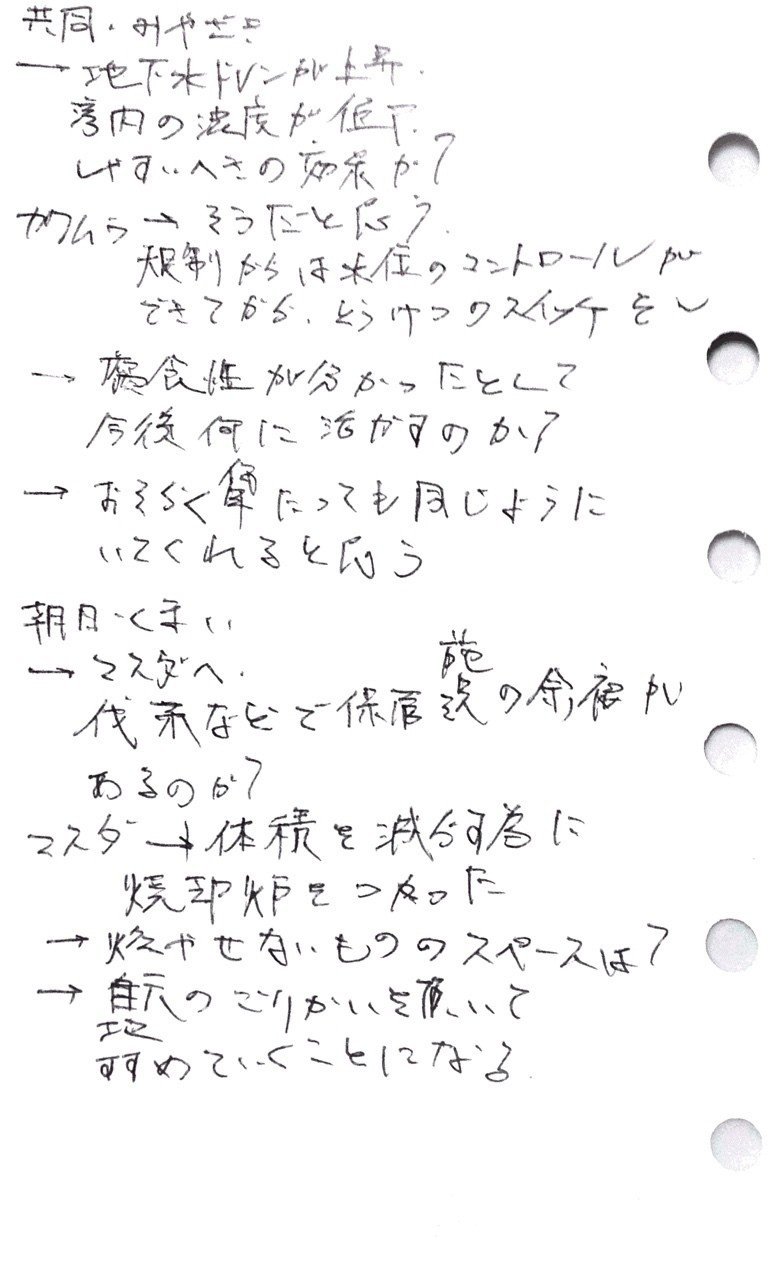 共同・みやざき
→ 地下水ドレンが上昇.
湾内の濃度が低下.
しゃすいへきの効果か?
カワムラ → そうだと思う.
規制からは水位のコントロールが
できてから、とうけつのスイッチをと
→ 腐食性が分かったとして
今後何に活かすのか?
→ おそらく たっても同じように
いてくれると思う
朝日・くまい
→ マスダへ.
伐採などで保管施設の余裕が
あるのか?
マスダ → 体積を減らす為に
焼却炉をつかった
→ 燃やせないもののスペースは?
→ 地元のごりかいを頂いて
すすめていくことになる.